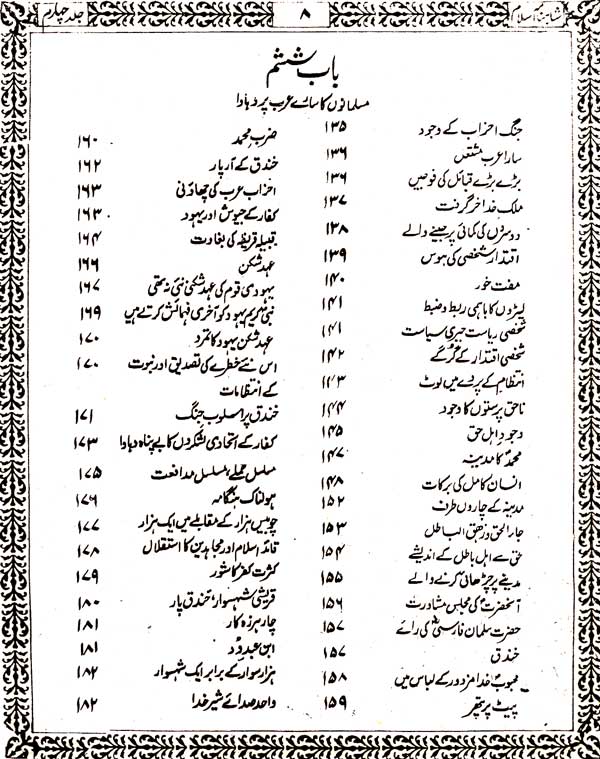 شاہنامہ اسلام
۸
جلد چہارم
باب ششم
مسلمانوں کا سارے عرب پر دہاوا
جنگ احزاب کے وجود ۱۳۵
سارا عرب مشتعل ۱۳۶
بڑے بڑے قبائل کی فوجیں ۱۳۶
ملک خدا خر گرفت ۱۳۷
دوسروں کی کمائی پر جینے والے ۱۳۸
اقتدار شخصی کی ہوس ۱۳۹
مفت خور ۱۴۰
لیڑوں کا باہمی ربط و ضبط ۱۴۱
شخصی ریاست جبری سیاست ۱۴۱
شخصی اقتدار کے گرگے ۱۴۲
انتظام کے پردے میں لوٹ ۱۴۳
ناحق پرستوں کا وجود ۱۴۴
وجود اہل حق ۱۴۵
محمدؐ کا مدینہ ۱۴۷
انسان کامل کی برکات ۱۴۸
مدینہ کے چاروں طرف ۱۵۲
جاء الحق و زھق الباطل ۱۵۳
حق سے اہل باطل کے اندیشے ۱۵۴
مدینے پر چڑھائی کرنے والے ۱۵۵
آنحضرتؐ کی مجلس مشاورت ۱۵۶
حضرت سلمان فارسیؓ کی رائے ۱۵۷
خندق ۱۵۷
محبوب خدا مزدور کے لباس میں ۱۵۸
پیٹ پر پتھر ۱۵۹
ضرب محمد ۱۶۰
خندق کے آر پار ۱۶۲
احزاب عرب کی چھاؤنی ۱۶۳
کفار کے جیوش اور یہود ۱۶۳
قبیلہ قریظہ کی بغاوت ۱۶۴
عہد شکن ۱۶۶
یہودی قوم کی عہد شکنی نئی نہ تھی ۱۶۷
نبی کریم یہود کو آخری فہمائش کرتے ہیں ۱۶۹
عہد شکن یہود کا تمرد ۱۷۰
اس نئے خطرے کی تصدیق اور نبوت ۱۷۰
کے انتظامات
خندق پر اسلوب جنگ ۱۷۱
کفار کے اتحادی لشکروں کا بے پناہ دہاوا ۱۷۳
مسلسل حملے، مسلسل مدافعت ۱۷۵
ہولناک ہنگامہ ۱۷۶
چوبیس ہزار کے مقابلے میں ایک ہزار ۱۷۷
قائد اسلام اور مجاہدین کا استقلال ۱۷۸
کثرت کفر کا شور ۱۷۹
قریشی شہسوار، خندق پار ۱۸۰
چار ہرزہ کار ۱۸۱
ابن عبدود ۱۸۱
ہزار سوار کے برابر ایک شہسوار ۱۸۲
واحد صدائے شیر خدا ۱۸۲